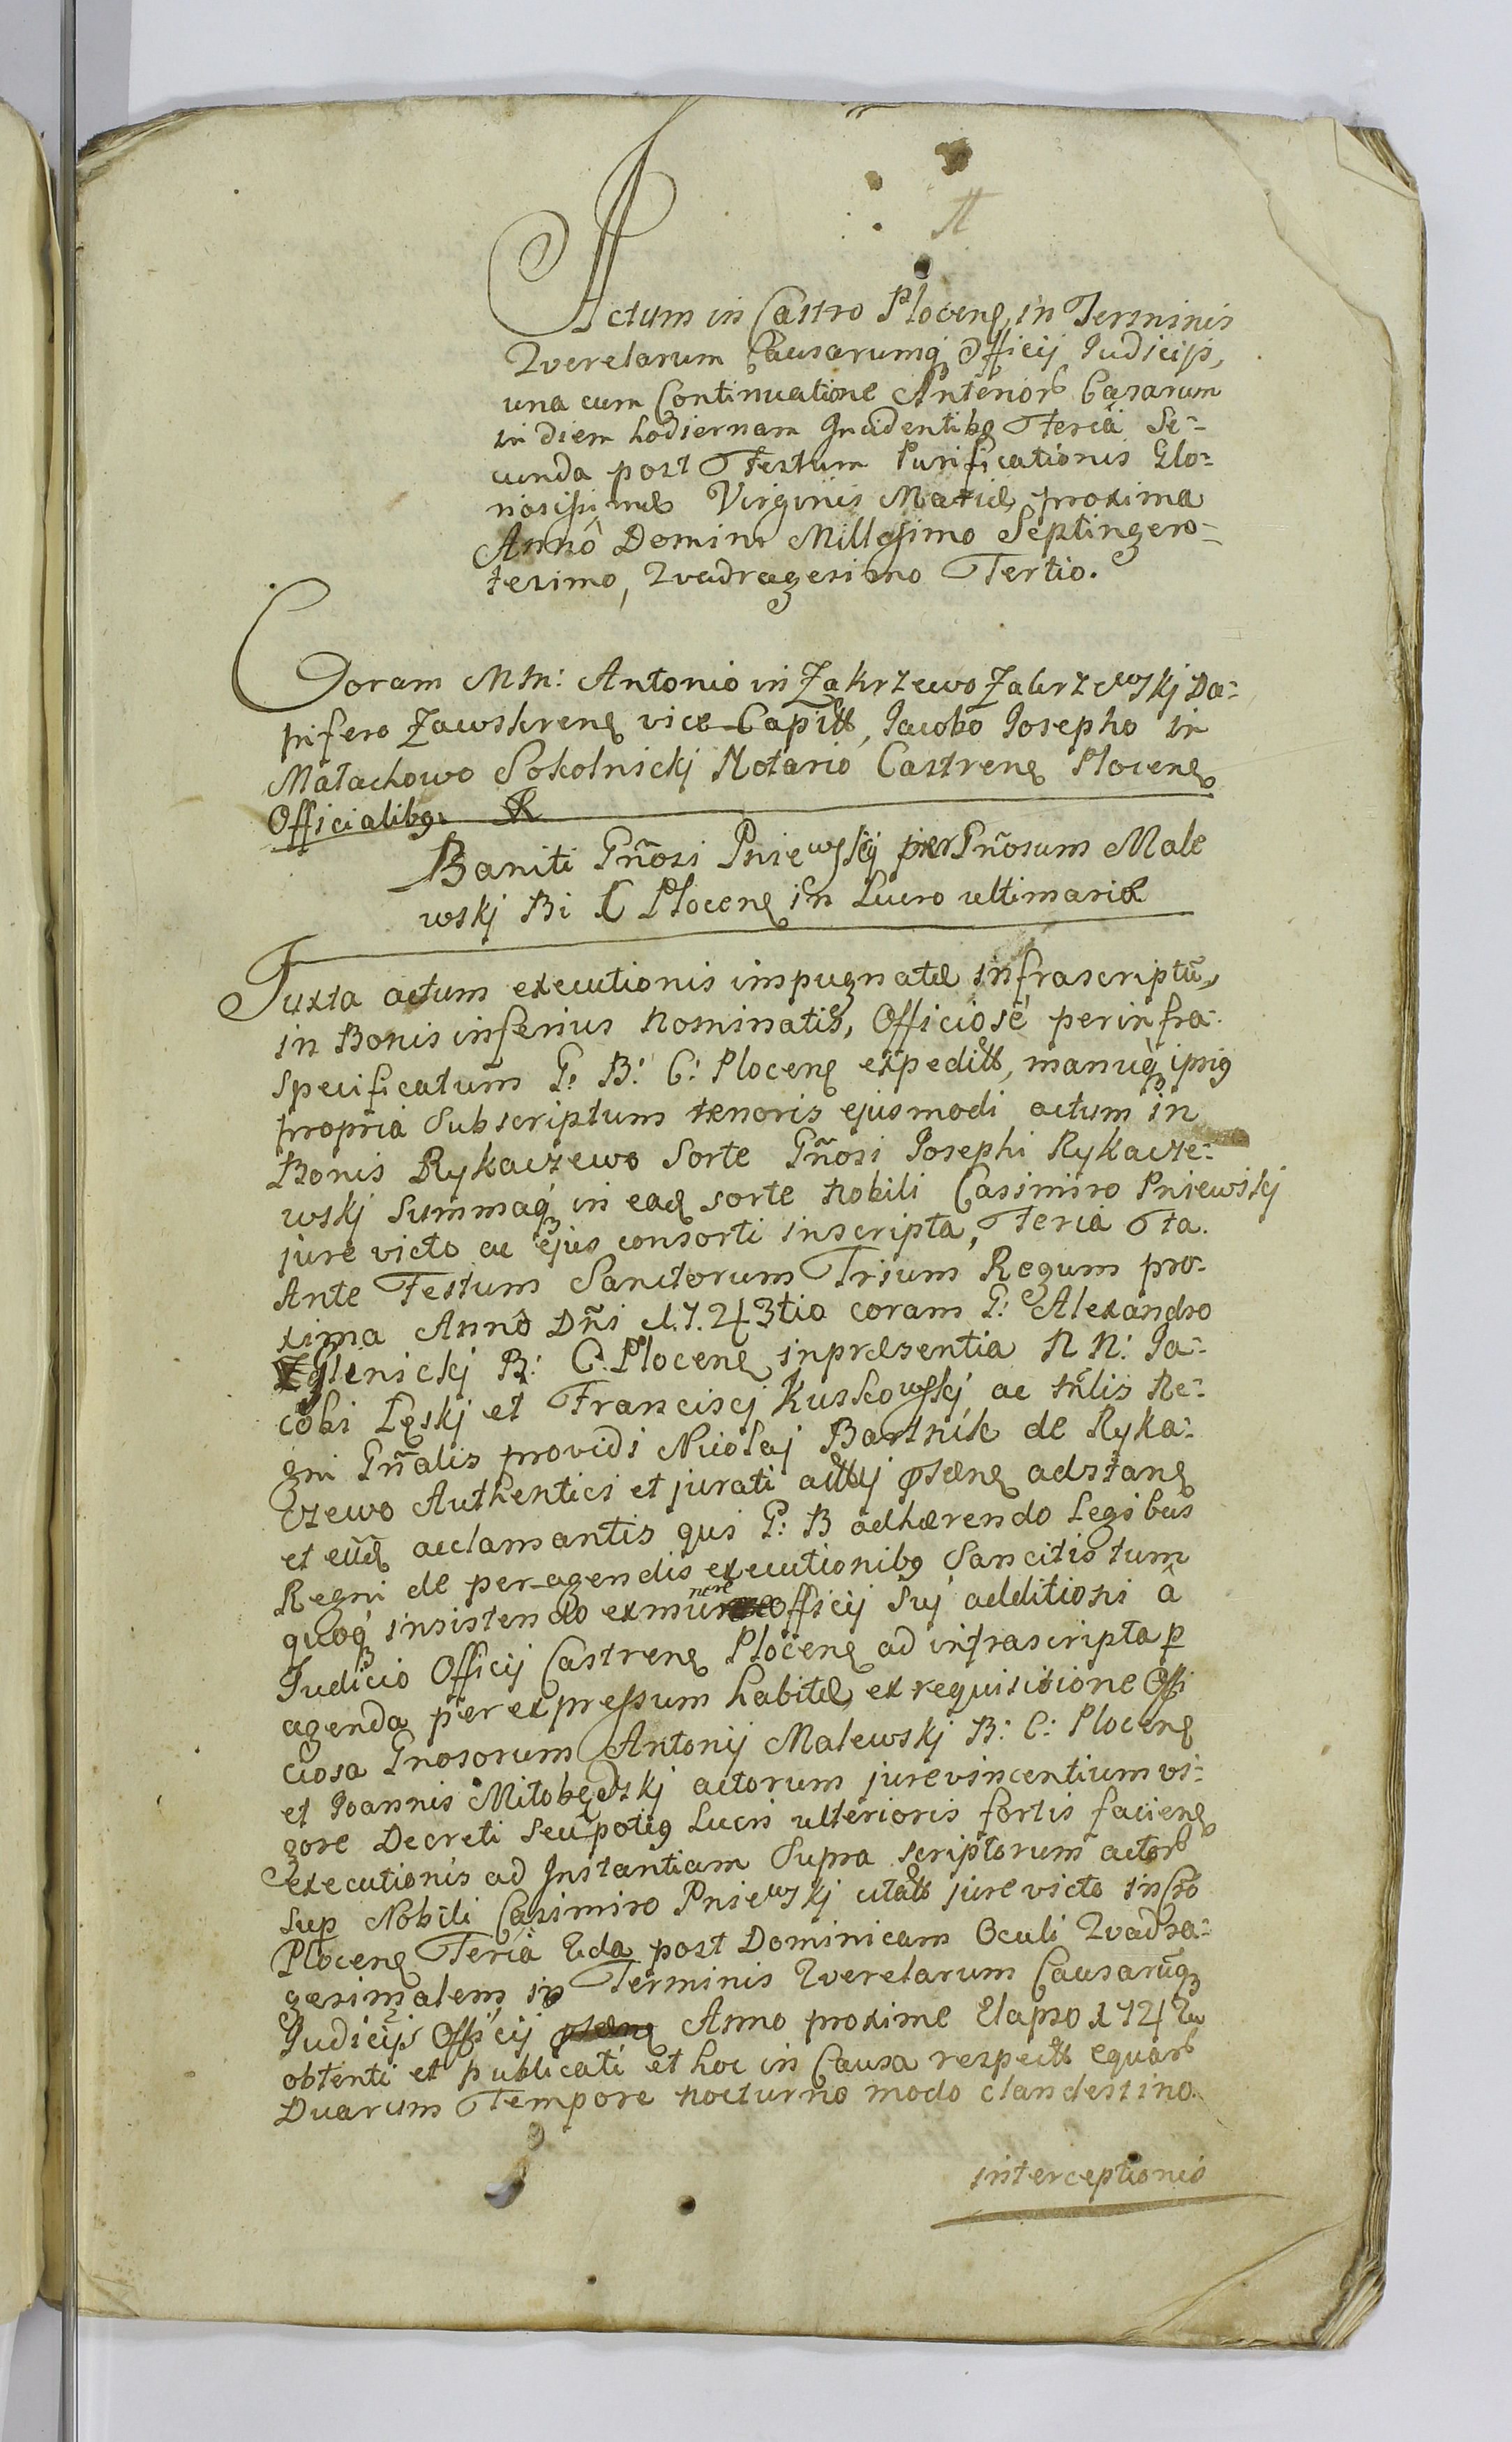 Actum in Castro Plocenȩ, in Terminis
Qverelarum Causarumqꝫ Officij Judicijs,
una cum Continuatione Anterior Causarum
in diem hodiernam Incidentibꝯ Feriâ Se-
cunda post Festum Purificationis Glo-
riosissimæ Virginis Mariæ proxima
Annô Domini Millesimo Septingen-
tesimo, Qvadragesimo Tertio.
Coram MM: Antonio in Zakrzewo Zakrzewskj Da-
pifero Zawskrenȩ vice Capitt, Jacobo Josepho in
Małachowo Sokolnickj Notario Castrenȩ Plocenȩ
Officialibꝯ.
Baniti Gñosi Pniewskij per Gñosum Male
wskj B C Plocenȩ in Lucro ultimaria
Juxta actum executionis impugnatæ infrascriptũ
in Bonis inferius Nominatis, Officiosè per infra
specificatum G. B: C: Plocenȩ expeditt, manuqꝫ ipsiꝯ
propria Subscriptum tenoris ejusmodi actum in
Bonis Rykaczewo Sorte Gñosi Josephi Rykacze-
wskj Summaqꝫ in eadȩ sorte Nobili Casimiro Pniewskj
jure victo ac ejus consorti inscripta, Feria 6ta
Ante Festum Sanctorum Trium Regum pro-
xima Annô Dñi 1.7.43tio coram G: Alexandro
Zglenickj B: C. Plocenȩ inpræsentia NN: Ja-
cobi Łęskj et Franciscj Kuskowskj, ac mlis Re-
gni Gñalis providi Nicolaj Bartnik de Ryka-
czewo Authentici et jurati adstanȩ
et eũdȩ acclamantis qui G: B adhærendo Legibus
Regni de peragendis executionibꝯ Sancitis tum
quoqꝫ insistendo exmunere Officij Suj additioni â
Judicio Officij Castrenȩ Plocenȩ ad infrascripta p
agenda per expressum habitæ, ex requisitione Offi
ciosa Gnosorum Antonij Malewskj B: C: Plocenȩ
et Joannis Miłobędzkj actorum jurevincentium vi-
gore Decreti Seu potiꝯ Lucri ulterioris fortis facienȩ
executionis ad Instantiam Supra scriptorum actor
Sup Nobili Casimiro Pniewskj citatt jure victo in Cro
Plocenȩ Feriâ 2da post Dominicam Oculi Qvadra-
gesimalem in Terminis Qverelarum Causarũqꝫ
Judicijs Officij Anno proxime Elapso 1742do
obtenti et publicati et hoc in Causa respectt equar
Duarum Tempore nocturno modo clandestino
interceptionis